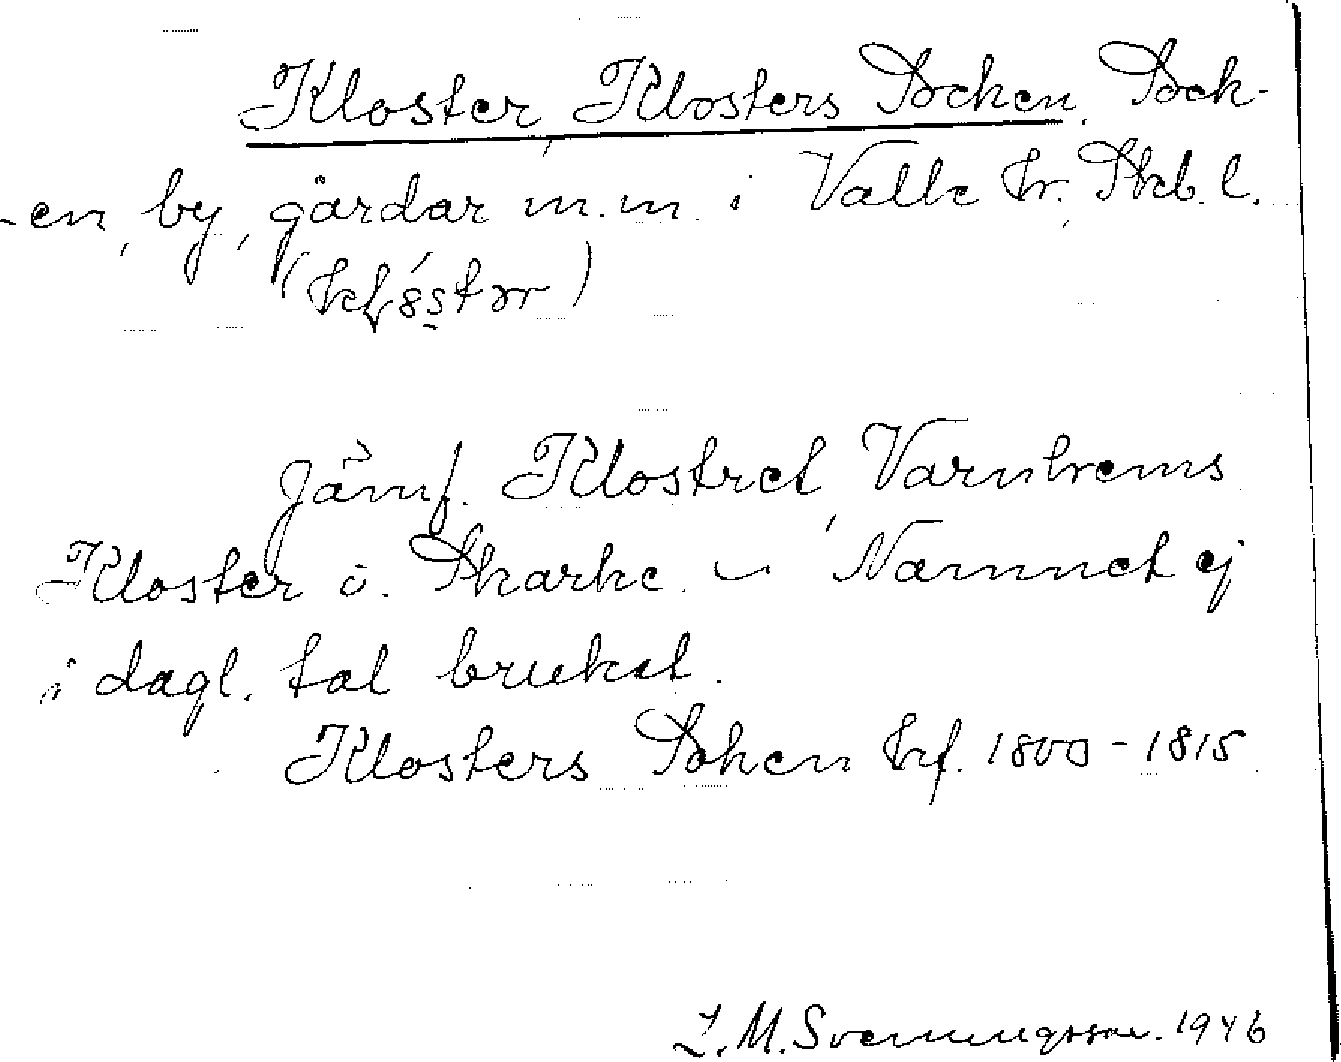 Kloster, Klosters Socken. Sock-
-en, by, gårdar m.m. i Valle hr. Skb. l.

Jämf. Klostret, Varnhems
Kloster o. Skarke. – Namnet ej
i dagl. tal brukat.
Klosters Soken hrf. 1800-1815
L. M. Svenungsson. 1946